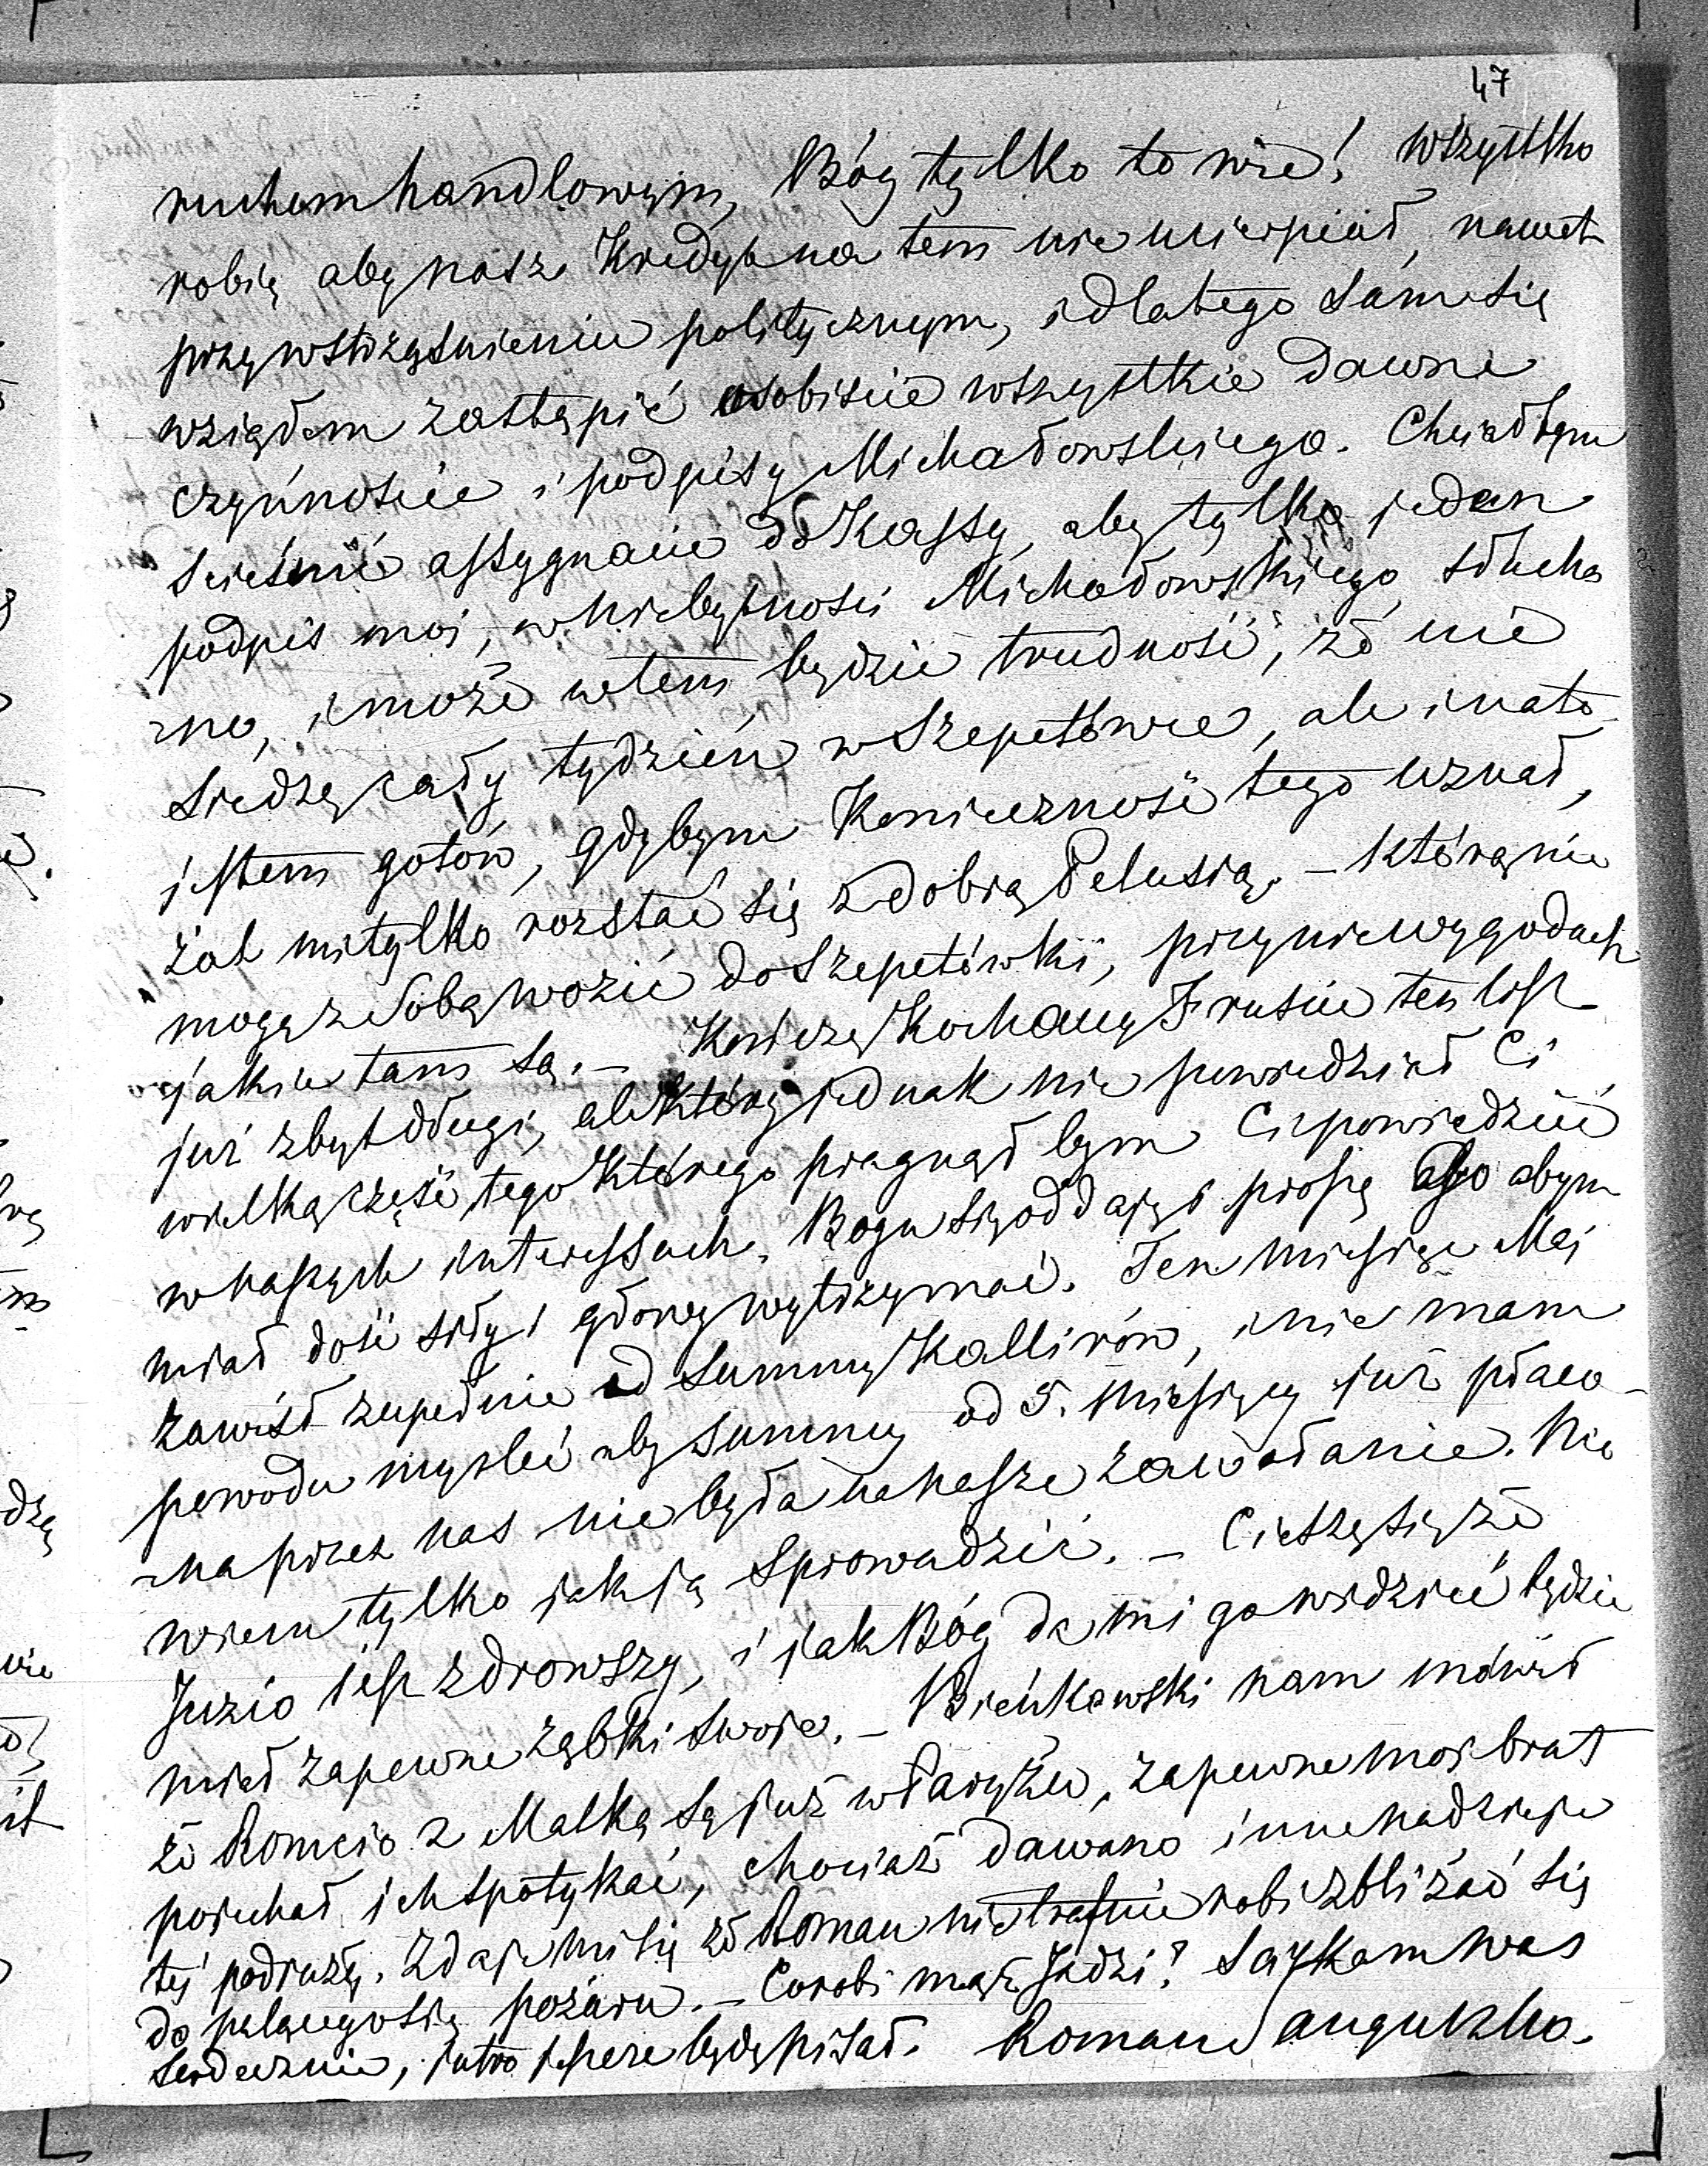 47
ruchem handlowym, Bóg tylko to wie! Wszystko
robię aby nasz Kredyt na tem nie ucierpiał, nawet
przy wstrząśnieniu politycznym, i dlatego sam się
wziąłem zastąpić osobiście wszystkie dawne
czynnoście i podpisy Michałowskiego. Chciałbym
ścieśnić assygnacie do Kassy, aby tylko jeden
podpis mój, w niebytności Michałowskiego słucha
-no, i może w tem będzie trudność, że nie
siedzę cały tydzień w Szepetówce, ale i na to
jestem gotów, gdybym Konieczność tego uznał,
żal mi tylko rozstać się z dobrą Pelusią. – którą nie
mogę z sobą wozić do Szepetówki, przy niewygodach
jakie tam są. – Kończę Kochany Frusiu ten list
już zbyt długi, ale który jednak nie powiedział Ci
wielką część tego którego pragnął bym Ci powiedzieć
w naszych interessach. Bogu się oddaję i proszę Go abym
miał dość siły i głowy wytrzymać. Ten miesiąc Maj
zawisł zupełnie od Summy Kallirów, i nie mam
powodu myśleć aby Summy od 5. miesięcy już płaco-
-na przez nas nie była na nasze zawołanie. Nie
wiem tylko jak ją sprowadzić. – Cieszę się że
Juzio jest zdrowszy, i jak Bóg da mi go widzieć będzie
miał zapewne ząbki swoje. – Bieńkowski nam mówił
że Romcio z Matką są już w Paryżu, zapewne mój brat
pojechał ich spotykać, chociaż dawano inne nadzieje
tej podróży. Zdaje mi się że Roman nie trafnie robi zbliżać się
do palącego się pożaru. – Co robi mąż Jadzi? Ściskam was
serdecznie, jutro jeszcze będę pisał. Roman Sanguszko.